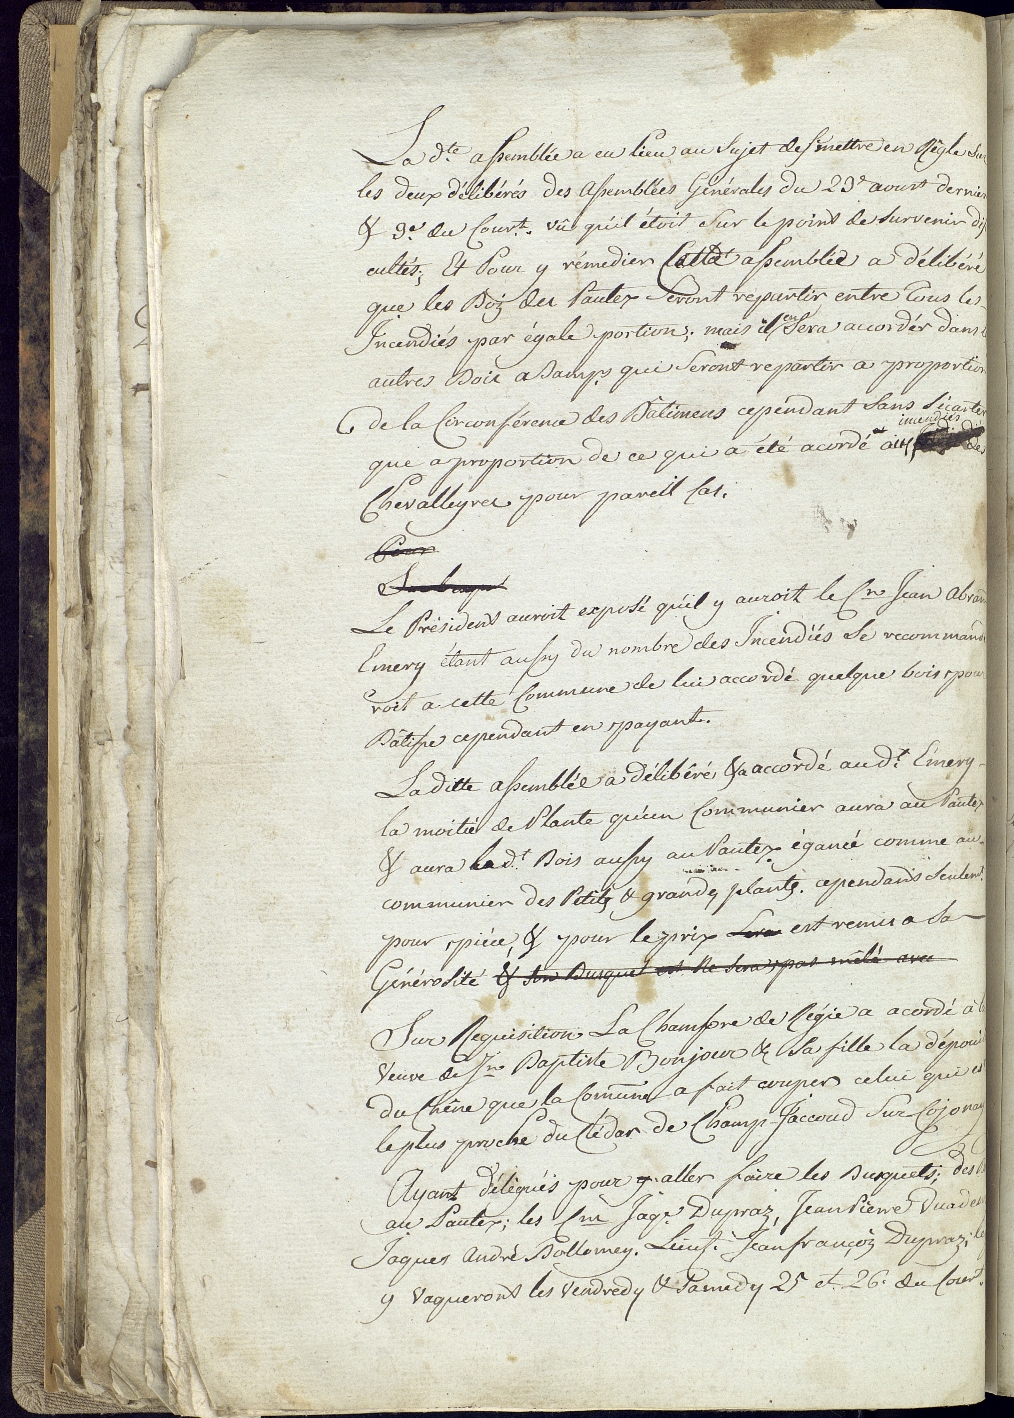 La d.te assemblée a eu lieu au Sujet de Se mettre en Règle Sur
les deux délibérés des Assemblées Générales du 29e aoust dernier
& 9e du Court. vû qu'il étoit Sur le point de Survenir dif
cultés; Et Pour y rémedier Cette assemblée a délibéré
que les Boij des Pautex Seront repartir entre Tous les
Incendiés par égale portion; mais il en Sera accordér dans
autres Bois a Damps qui Seront repartir a proportion
de la Circonférence des Bâtimens cependant Sans S'écarter
que a proportion de ce qui a été acordé aux incendiés des
Chevalleyres pour pareil Cas.
Pour
Le Président auroit exposé qu'il y auroit le Cn Jean Abram
Emery étant aussy du nombre des Incendiés Se recommand
roit a cette Commune de lui accordé quelque bois pour
Bâtisse cependant en payant.
La ditte assemblée a délibéré & a accordé au d.t Emery
la moitié de Plante qu'un Communier aura au Pautex
& aura le d.t Bois aussy au Pautex égancé comme au
communier des Petits & grandes plantes. cependans Seulem.t
pour, pièce, & pour le prix Sera est remis a Sa
Générosité & Son Buquet est Ne Sera pas mêlé avec
Sur Requisition La Chambre de Régie a acordé à la
Veuve de Jn Baptiste Bonjour & Sa fille la dépoui
du Chêne que la Comune a fait couper celui qui est
le plus proche du Clédar de Champ-Jaccoud Sur Cojonay
Ayant délégués pour y aller faire les Buquets; des B
au Pautex; les Cns Jaqs Dupraz, Jean Pierre Duade
Jaques André Bollomey. Lieut. Jean françois Dupraz; les
y vaqueront les Vendredy & Samedy 25 et 26. du Court.